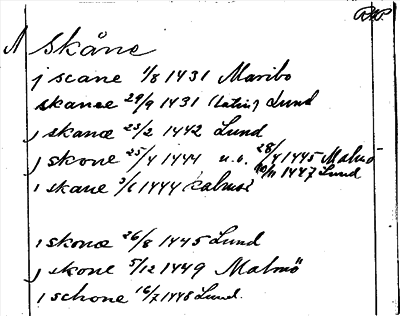 Skåne
j scane 1/8 1431 Maribo
skanæ 29/9 1431 (Latin) Lund
j skanæ 23/2 1442 Lund
j skone 25/4 1444 u.o. 28/4 1445 Malmö
10/11 1447 Lund
i skane 3/6 1444
i skonæ 26/8 1445 Lund
j skone 5/12 1449 Malmö
j schone 16/7 1448 Lund.